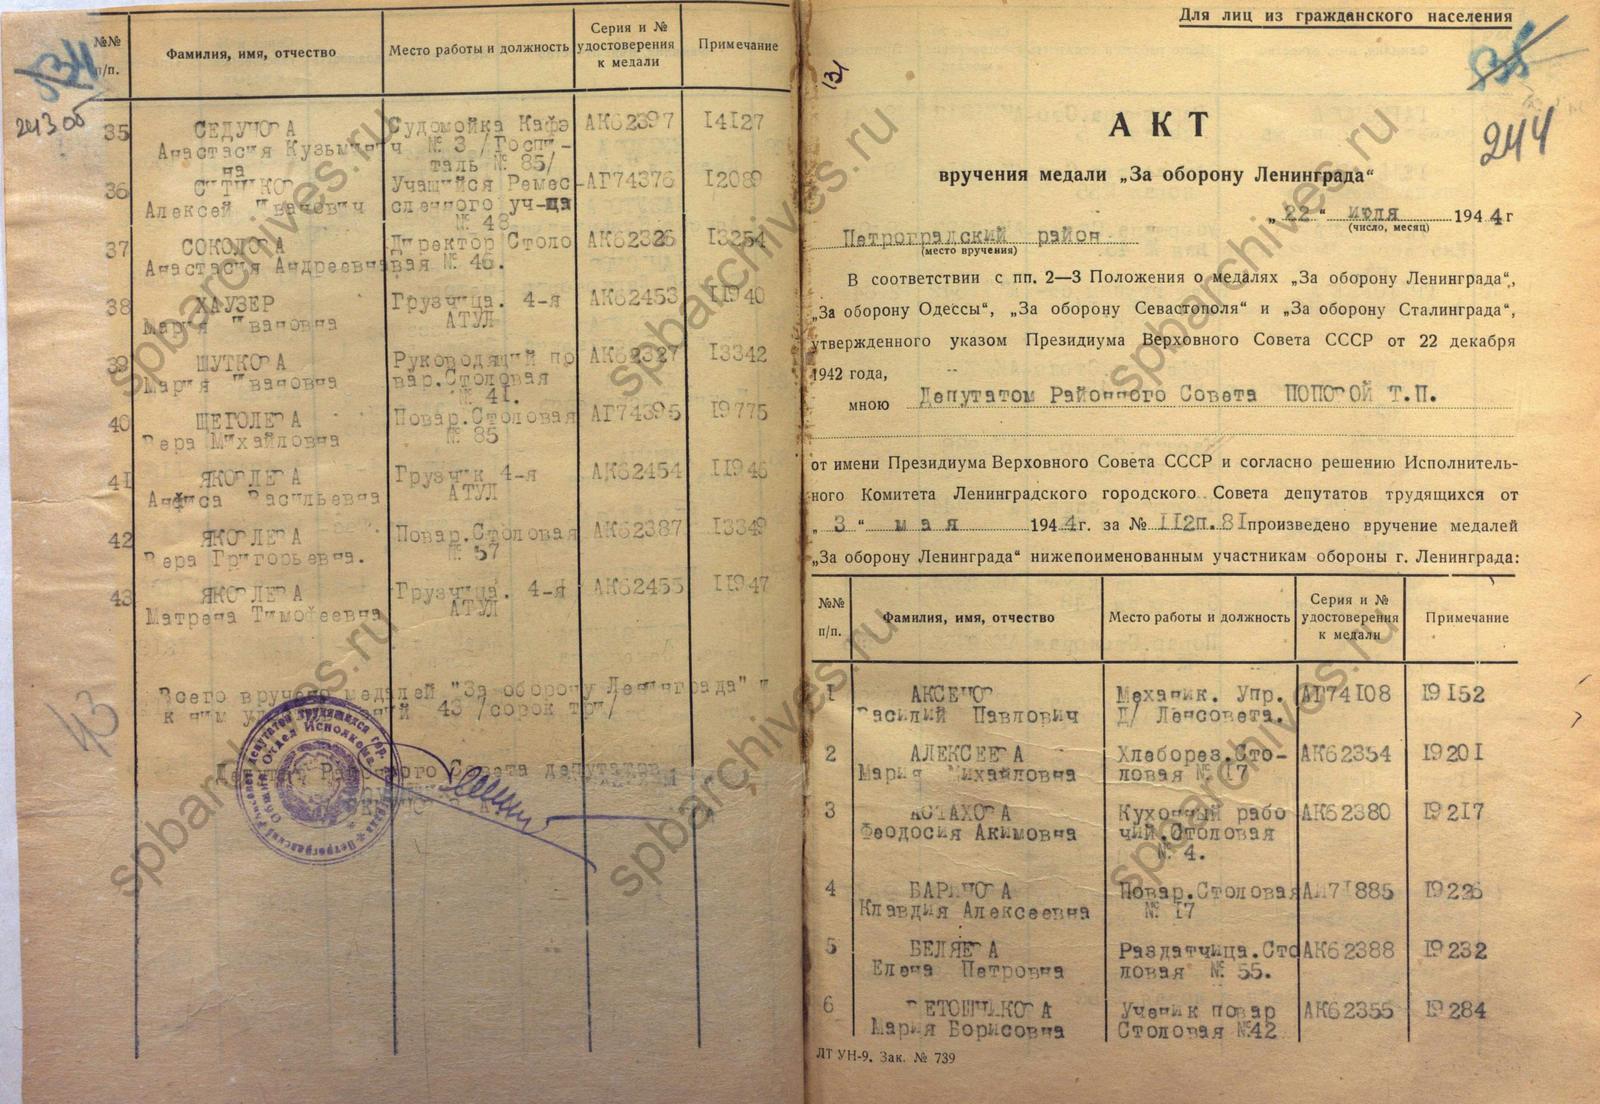 №№ п/п.
Фамилия, имя, отчество
Место работы и должность
Серия и № удостоверения к медали
Примечание
243 об
35 СЕДУНОВА Судомойка Кафэ АК62397 14127
Анастасия Кузьминич № 3 /Госпи-
на таль № 85/
36 Учащийся Ремес АГ74376 12089
Алексей Иванович сленного уч-ща
№ 48
37 СОКОЛОВА Директор Столо АК62326 13254
Анастасия Андреевна вая № 46.
38 ХАУЗЕР Грузчица. 4-я АК62453 11940
Мария Ивановна АТУЛ
39 ШУТКОВА Руководящий по АК62327 13342
Мария Ивановна вар.Столовая
№ 41.
40 ЩЕГОЛЕВА Повар.Столовая АГ74395 19775
Вера Михайловна № 85
41 ЯКОВЛЕВА Грузчик 4-я АК62454 11946
Анфиса Васильевна АТУЛ
42 ЯКОВЛЕВА Повар.Столовая АК62387 13349
Вера Григорьевна. № 57
43 ЯКОВЛЕВА Грузчица. 4-я АК62455 11947
Матрена Тимофеевна АТУЛ
Всего вручено медалей "За оборону Ленинграда" и
к ним 43 /сорок три/
43
Совета депутатов
Для лиц из гражданского населения
131
535
244
АКТ
вручения медали „За оборону Ленинграда“
„22“ июля 1944г
(число, месяц)
Петроградский район
(место вручения)
В соответствии с пп. 2—3 Положения о медалях „За оборону Ленинграда“,
„За оборону Одессы“, „За оборону Севастополя“ и „За оборону Сталинграда“,
утвержденного указом Президиума Верховного Совета СССР от 22 декабря
1942 года,
мною Депутатом Районного Совета ПОПОВОЙ Т.П.
от имени Президиума Верховного Совета СССР и согласно решению Исполнитель-
ного Комитета Ленинградского городского Совета депутатов трудящихся от
„3“ мая 1944г. за № 112п.81 произведено вручение медалей
„За оборону Ленинграда“ нижепоименованным участникам обороны г. Ленинграда:
№№ п/п.
Фамилия, имя, отчество
Место работы и должность
Серия и № удостоверения к медали
Примечание
1 АКСЕНОВ Механик. Упр. АГ74108 19152
Василий Павлович Д/ Ленсовета.
2 АЛЕКСЕЕВА Хлеборез.Сто- АК62354 19201
Мария Михайловна ловая № 17
3 АСТАХОВА Кухонный рабо АК62380 19217
Феодосия Акимовна чий.Столовая
№ 4.
4 БАРИНОВА Повар.Столовая 71885 19226
Клавдия Алексеевна № 17
5 БЕЛЯЕВА Раздатчица.Сто АК62388 19232
Елена Петровна ловая № 55.
6 ВЕТОШНИКОВА Ученик повар АК62355 19284
Мария Борисовна Столовая №42
ЛТ УН-9. Зак. № 739
spbarchives.ru